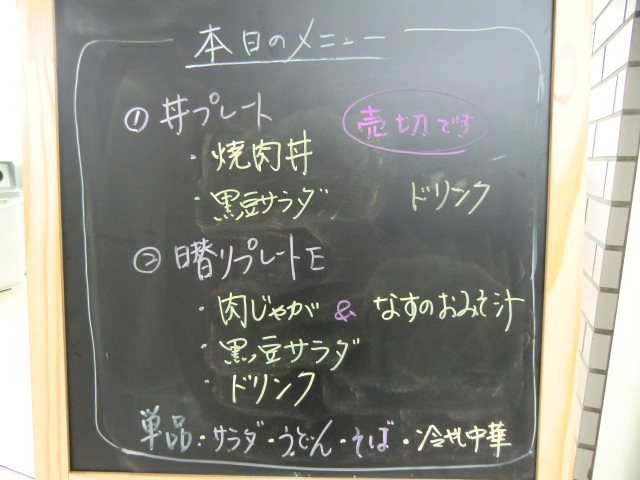 本日のメニュー
① 丼プレート 売切です
・焼肉丼
・黒豆サラダ ドリンク
② 日替リプレートE
・肉じゃが & なすのおみそ汁
・黒豆サラダ
・ドリンク
単品・サラダ・うどん・そば・冷やし中華